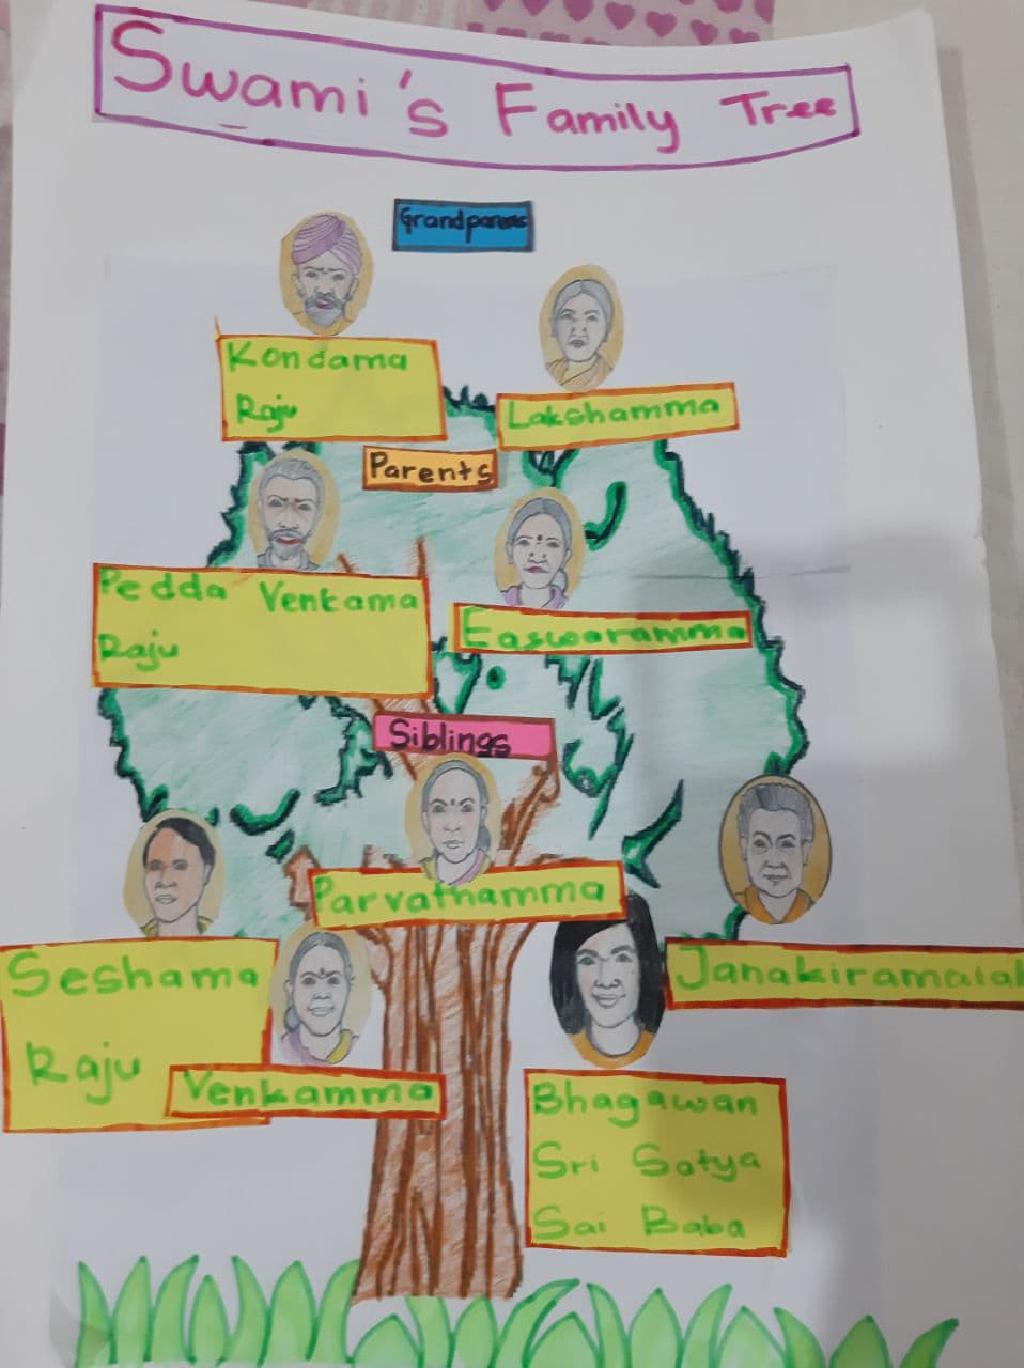 Swami's Family Tree
Grandparents
Kondama
Raju
Lakshamma
Parents
Pedda Venkama
Raju
Easwaramma
Siblings
Parvathamma
Seshama
Raju
Janakiramaiah
Venkamma
Bhagawan
Sri Satya
Sai Baba